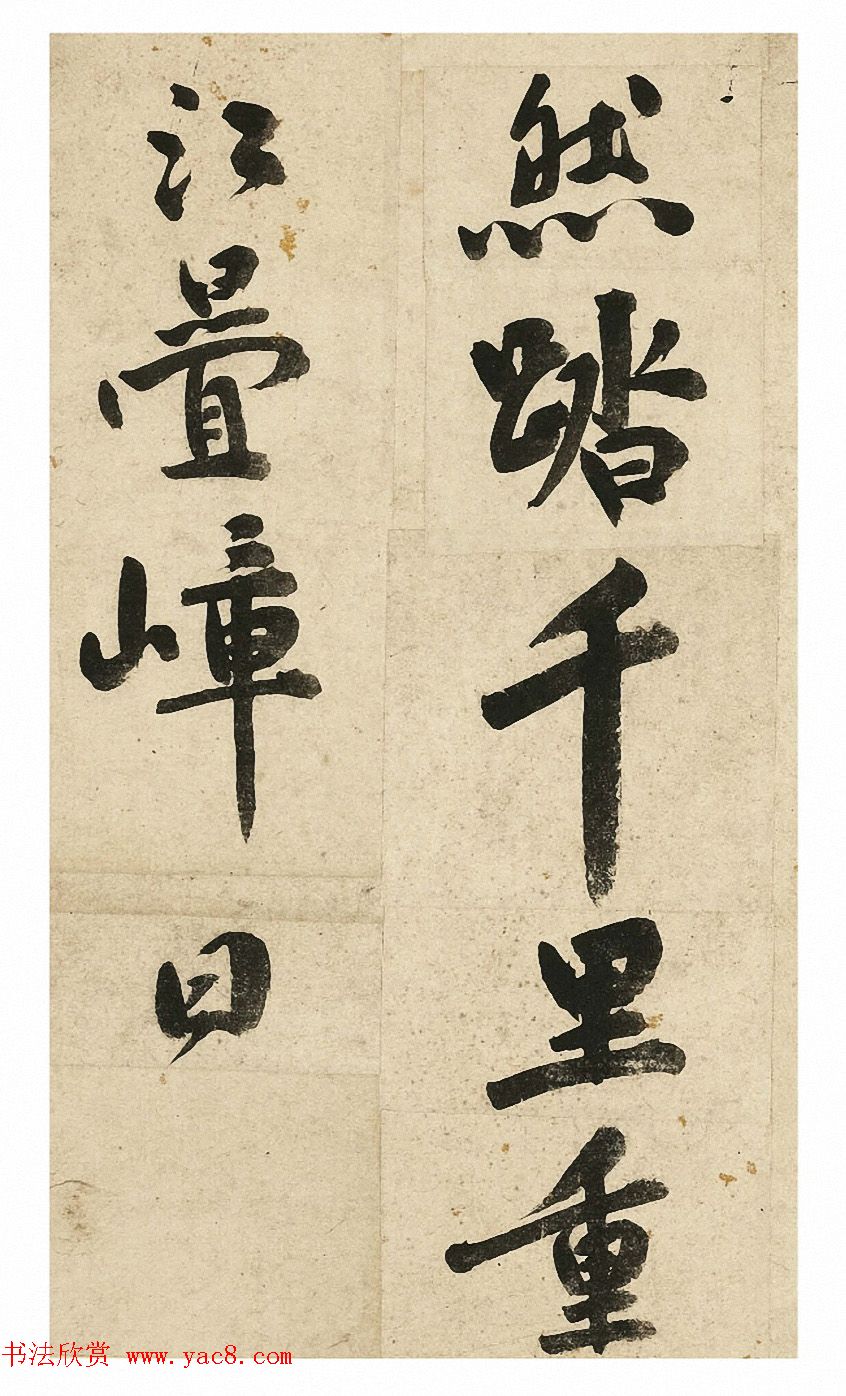 然踏千里重
江疊嶂日
书法欣赏 www.yac8.com